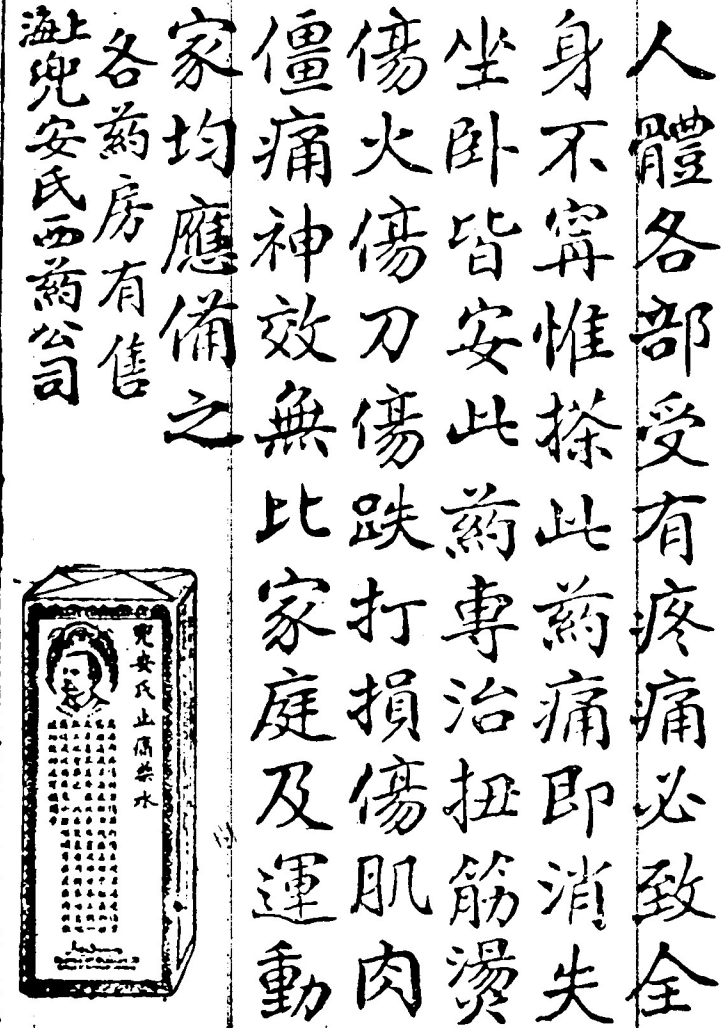 人體各部受有疼痛必致全
身不寗惟搽此葯痛即消失
坐卧皆安此葯専治扭筋燙
傷火傷刀傷跌打損傷肌肉
僵痛神效無比家庭及運動
家均應備之
各葯房有售
上海兜安氏西葯公司
兜安氏止痛葯水